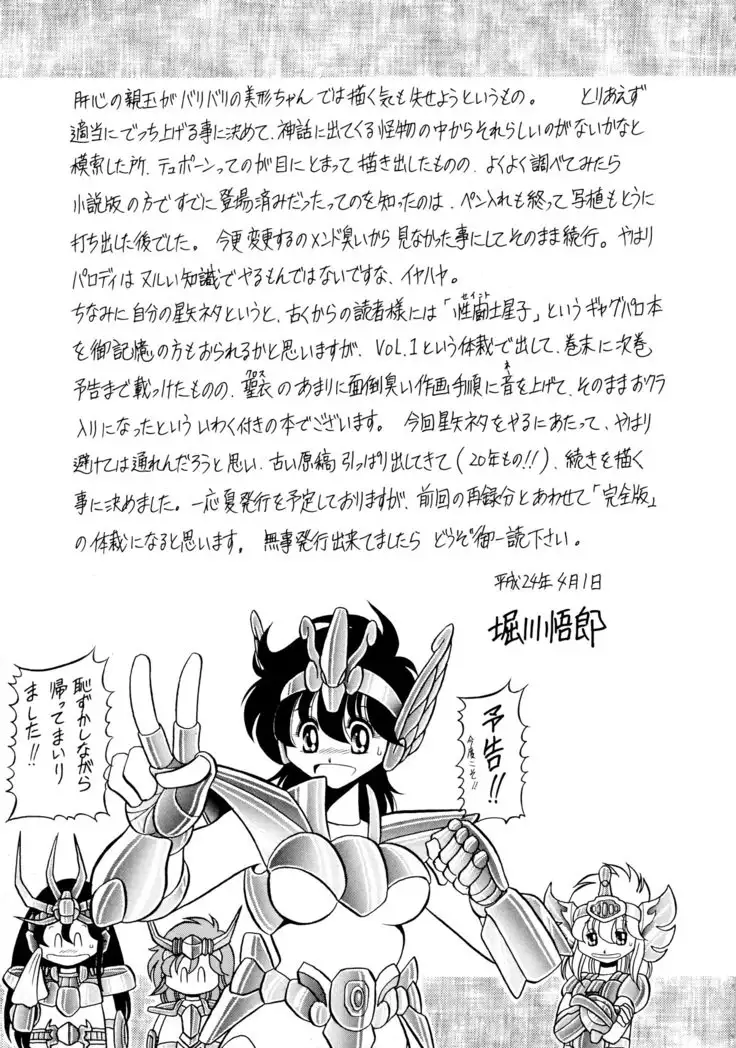 肝心の親玉がバリバリの美形ちゃんでは描く気も失せようというもの。　とりあえず
適当にでっち上げる事に決めて、神話に出てくる怪物の中からそれらしいのがないかなと
模索した所、テュポーンってのが目にとまって描き出したものの、よくよく調べてみたら
小説版の方ですでに登場済みだったってのを知ったのは、ペン入れも終って写植もとうに
打ち出した後でした。今更変更するのメンド臭いから見なかった事にしてそのまま続行。やはり
パロディはヌルい知識でやるもんではないですな、イヤハヤ。
ちなみに自分の星矢ネタというと、古くからの読者様には「性闘士星子」というギャグパロ本
セイント
を御記憶の方もおられるかと思いますが、Vol.1という体裁で出して、巻末に次巻
予告まで載っけたものの、聖衣のあまりに面倒臭い作画手順に音を上げて、そのままおクラ
クロス
ね
入りになったといういわく付きの本でございます。今回星矢ネタをやるにあたって、やはり
避けては通れんだろうと思い、古い原稿引っぱり出してきて(20年もの!!)、続きを描く
事に決めました。一応夏発行を予定しておりますが、前回の再録分とあわせて「完全版」
の体裁になると思います。無事発行出来てましたらどうぞ御一読下さい。
平成24年4月1日
堀川悟郎
予告!!
今度こそ!!
恥ずかしながら
帰ってまいり
ました!!